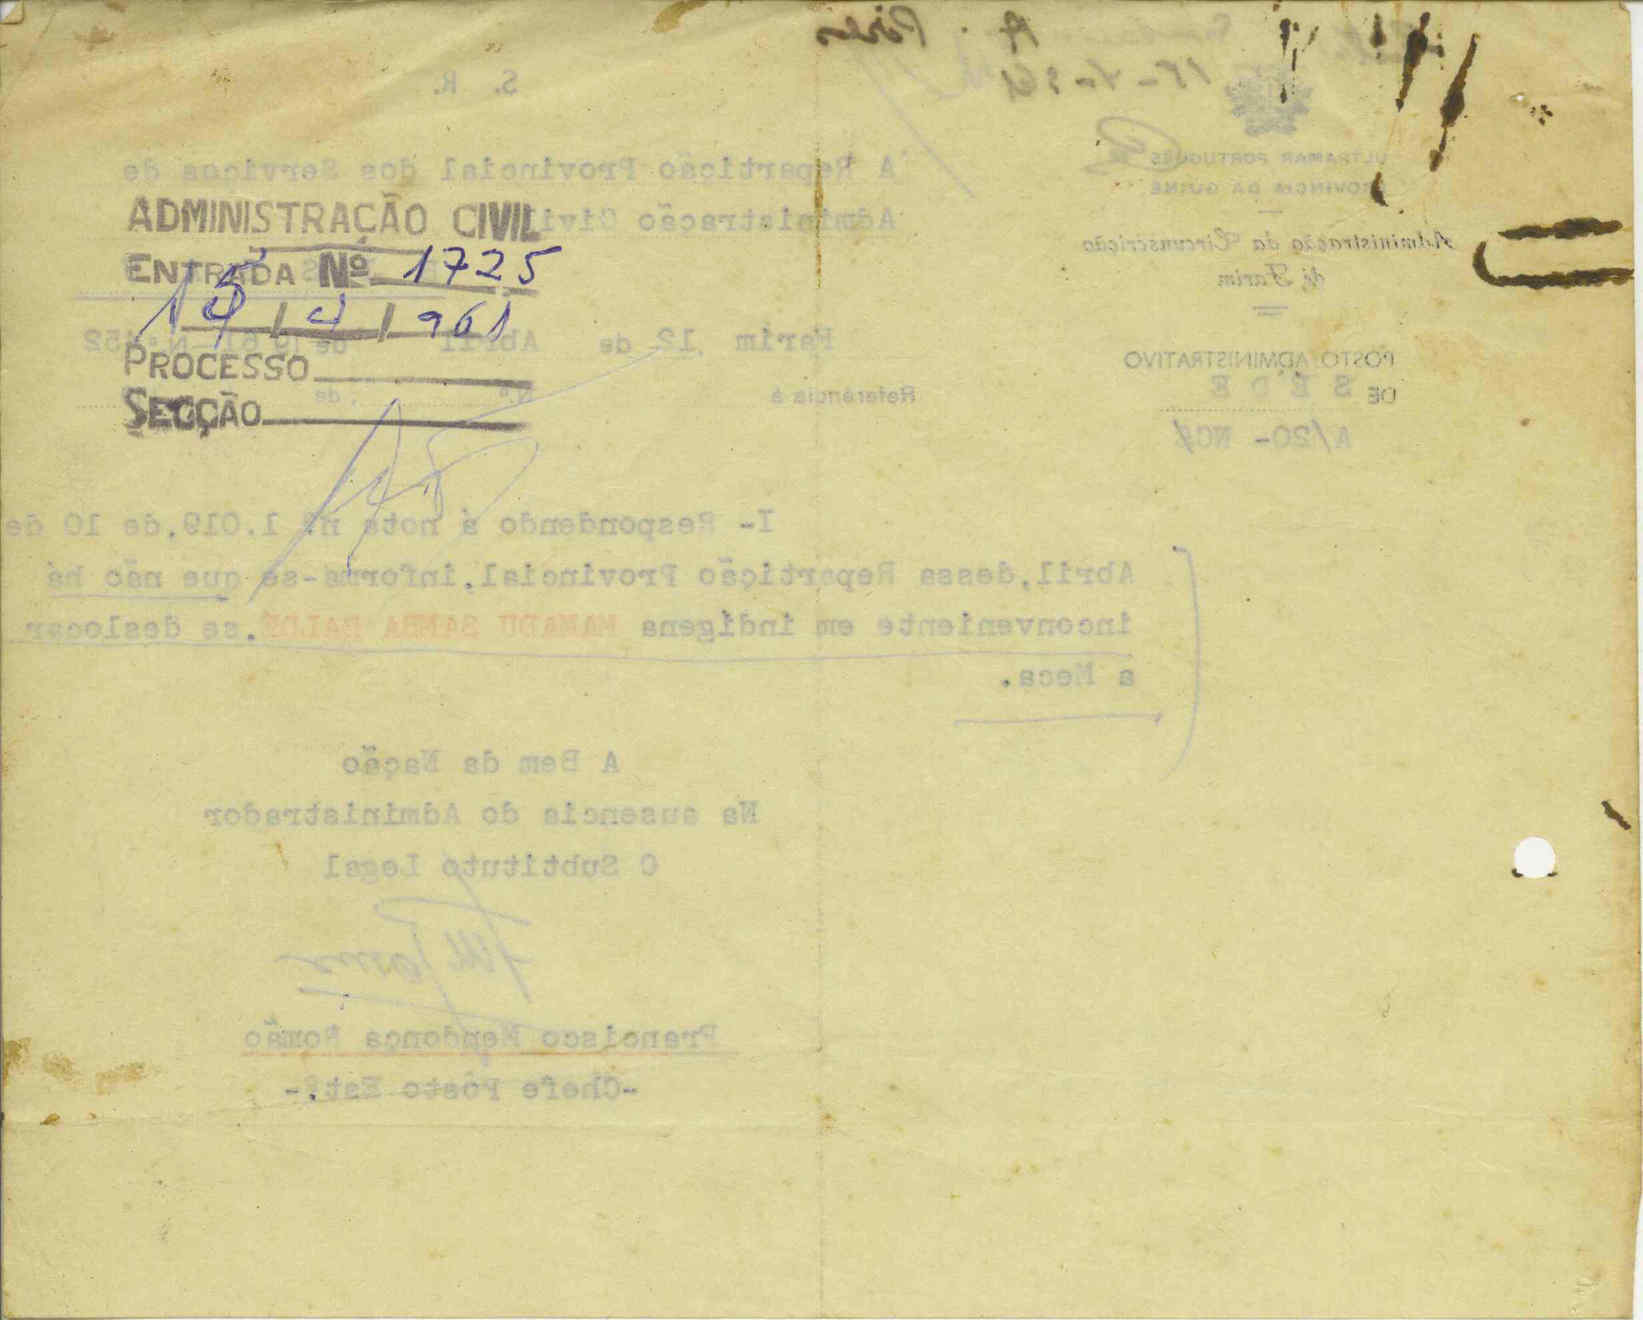 S. R.
ULTRAMAR PORTUGUÊS
PROVÍNCIA DA GUINÉ
Administração da Circunscrição
de Farim
POSTO ADMINISTRATIVO
DE SÉDE
A/20- NC
A Repartição Provincial dos Serviços de
Administração Civil
ADMINISTRAÇÃO CIVIL
ENTRADA Nº 1725
15/4/961
PROCESSO
SECÇÃO
Farim, 12 de Abril de 1961
Referência à Nº , de
I- Respondendo á nota nº 1.019,de 10 de
Abril,dessa Repartição Provincial,informa-se que não há
inconveniente em indígena MAMADU SAMBA BALDÉ,se deslocar
a Meca.
A Bem da Nação
Na ausencia do Administrador
O Subtituto Legal
Francisco Mendonça Romão
-Chefe Pôsto Est.-